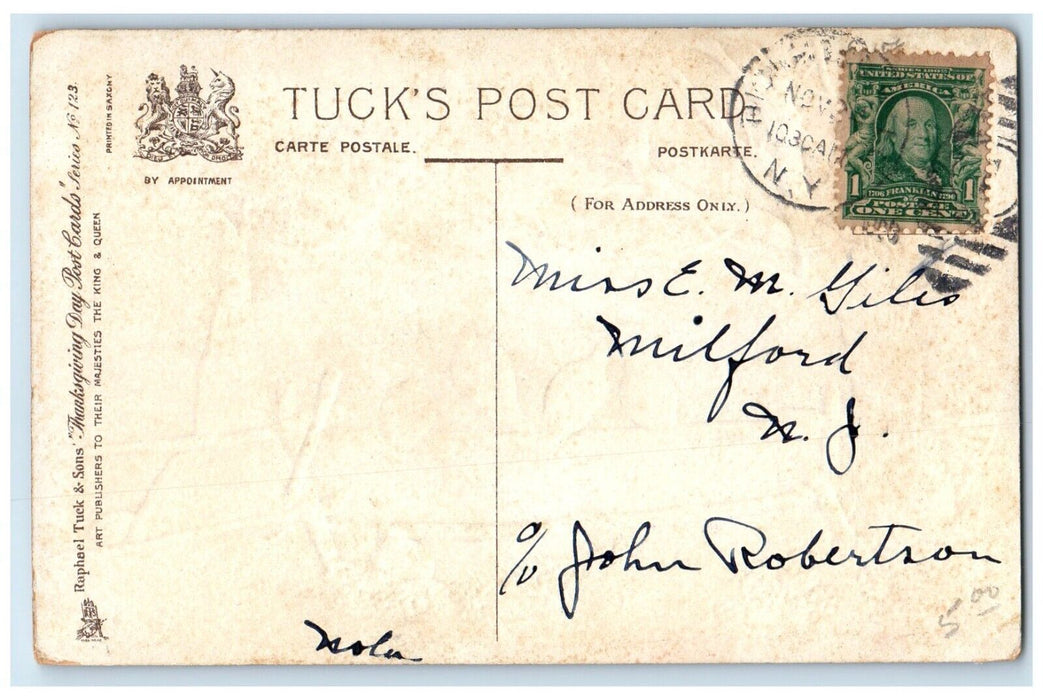 TUCK'S POST CARD
CARTE POSTALE.
POSTKARTE.
(FOR ADDRESS ONLY.)
BY APPOINTMENT
PRINTED IN SAXONY
Raphael Tuck & Sons' "Thanksgiving Day Post Cards" Series No 123.
ART PUBLISHERS TO THEIR MAJESTIES THE KING & QUEEN
NOV
1030AM
N.Y.
SERIES 1902
UNITED STATES OF
AMERICA
1 1
1706 FRANKLIN 1790
POSTAGE
ONE CENT
Miss E. M. Giles
Milford
N. J.
c/o John Robertson
Nola
5 00